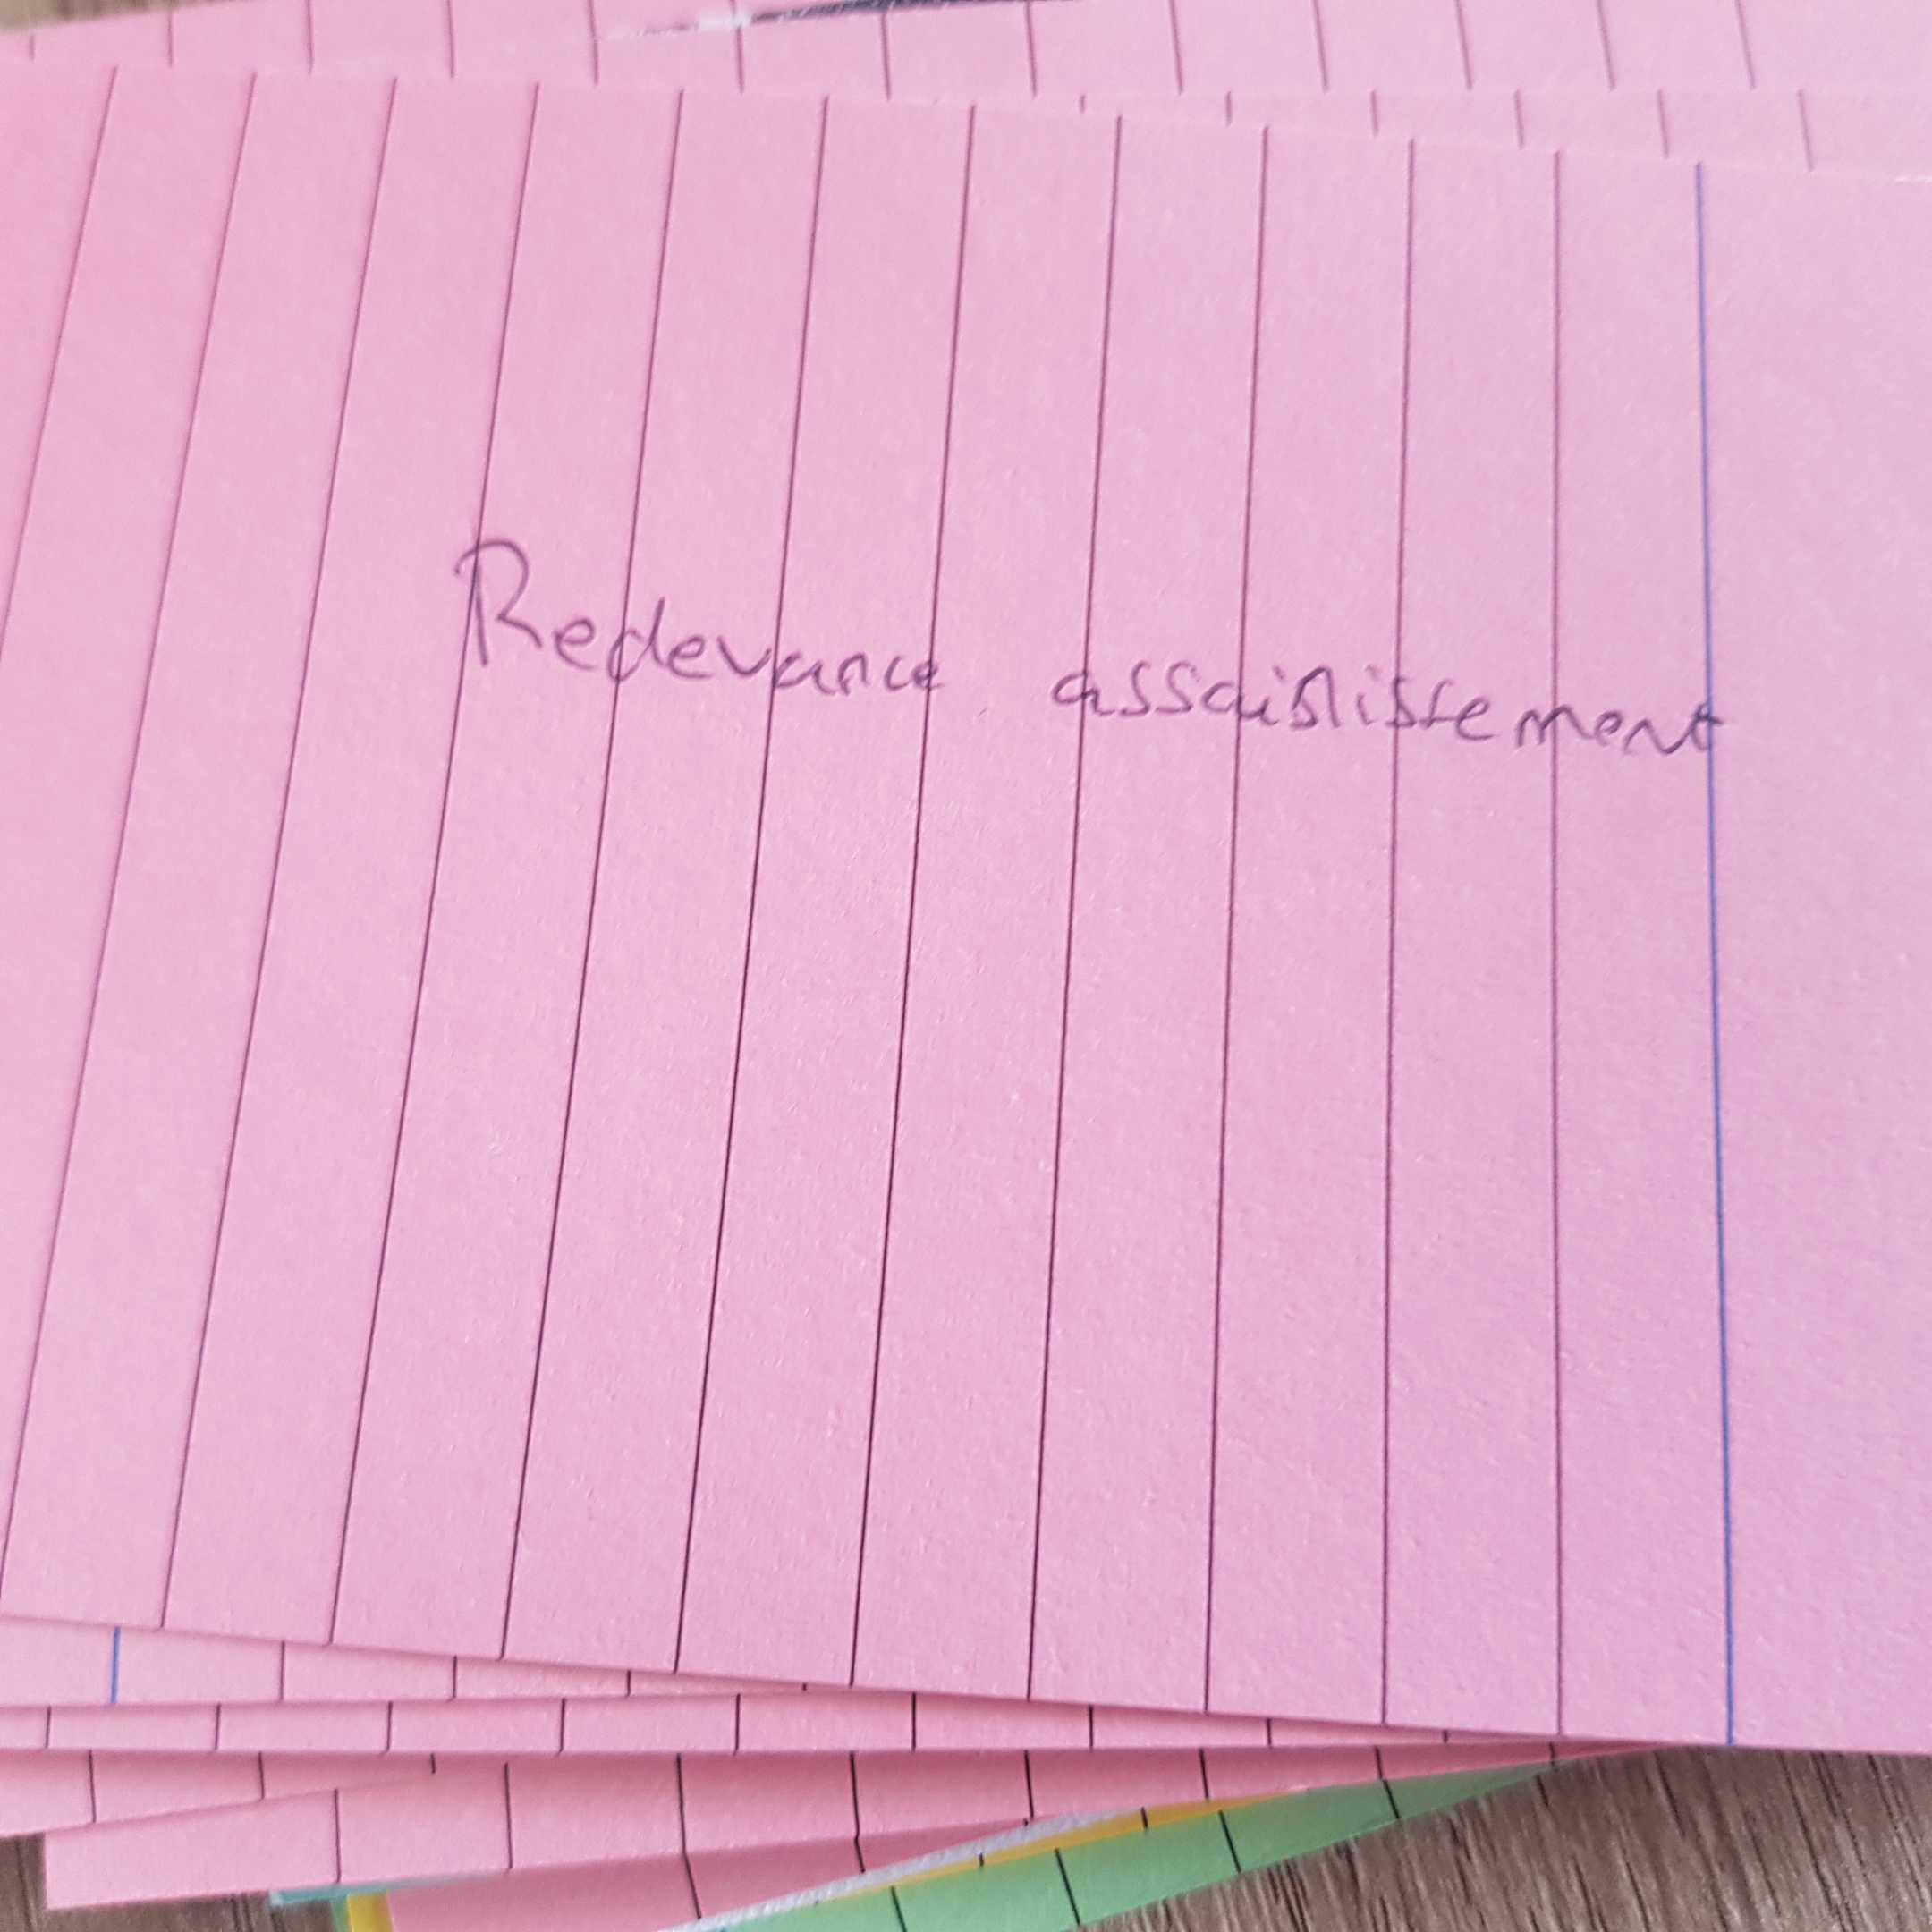 Redevance assainissement